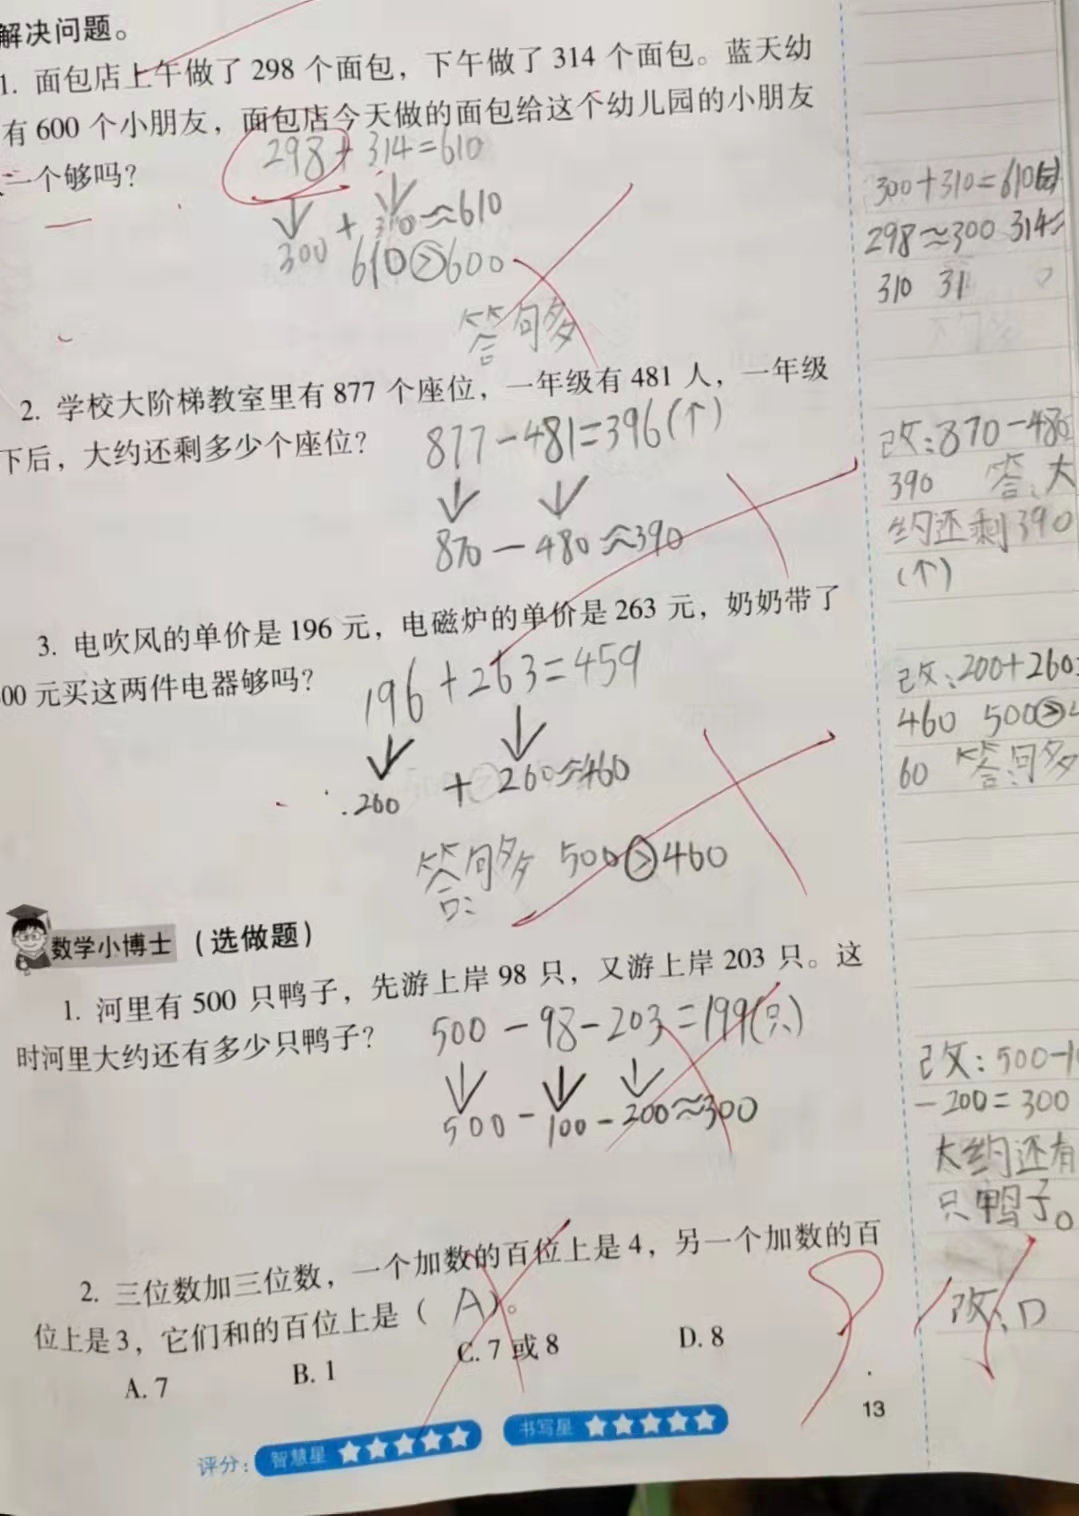 解决问题。
1. 面包店上午做了 298 个面包，下午做了 314 个面包。蓝天幼
有 600 个小朋友，面包店今天做的面包给这个幼儿园的小朋友
一个够吗？
298+314=610
300 + 310≈610
610>600
答句多
300+310=610
298≈300 314≈
310 31
2. 学校大阶梯教室里有 877 个座位，一年级有 481 人，一年级
下后，大约还剩多少个座位？
877-481=396(个)
870-480≈390
改:870-480
390 答、大
约还剩390
(个)
3. 电吹风的单价是 196 元，电磁炉的单价是 263 元，奶奶带了
00 元买这两件电器够吗？
196+263=459
200 + 260≈460
答:句多 500>460
改:200+260=
460 500>4
60 答:句多
数学小博士 （选做题）
1. 河里有 500 只鸭子，先游上岸 98 只，又游上岸 203 只。这
时河里大约还有多少只鸭子？
500-98-203=199(只)
500-100-200≈300
改:500-1
-200=300
大约还有
只鸭子。
2. 三位数加三位数，一个加数的百位上是 4，另一个加数的百
位上是 3，它们和的百位上是（ A ）。
A. 7 B. 1 C. 7 或 8 D. 8
改、D
13
评分： 智慧星 书写星